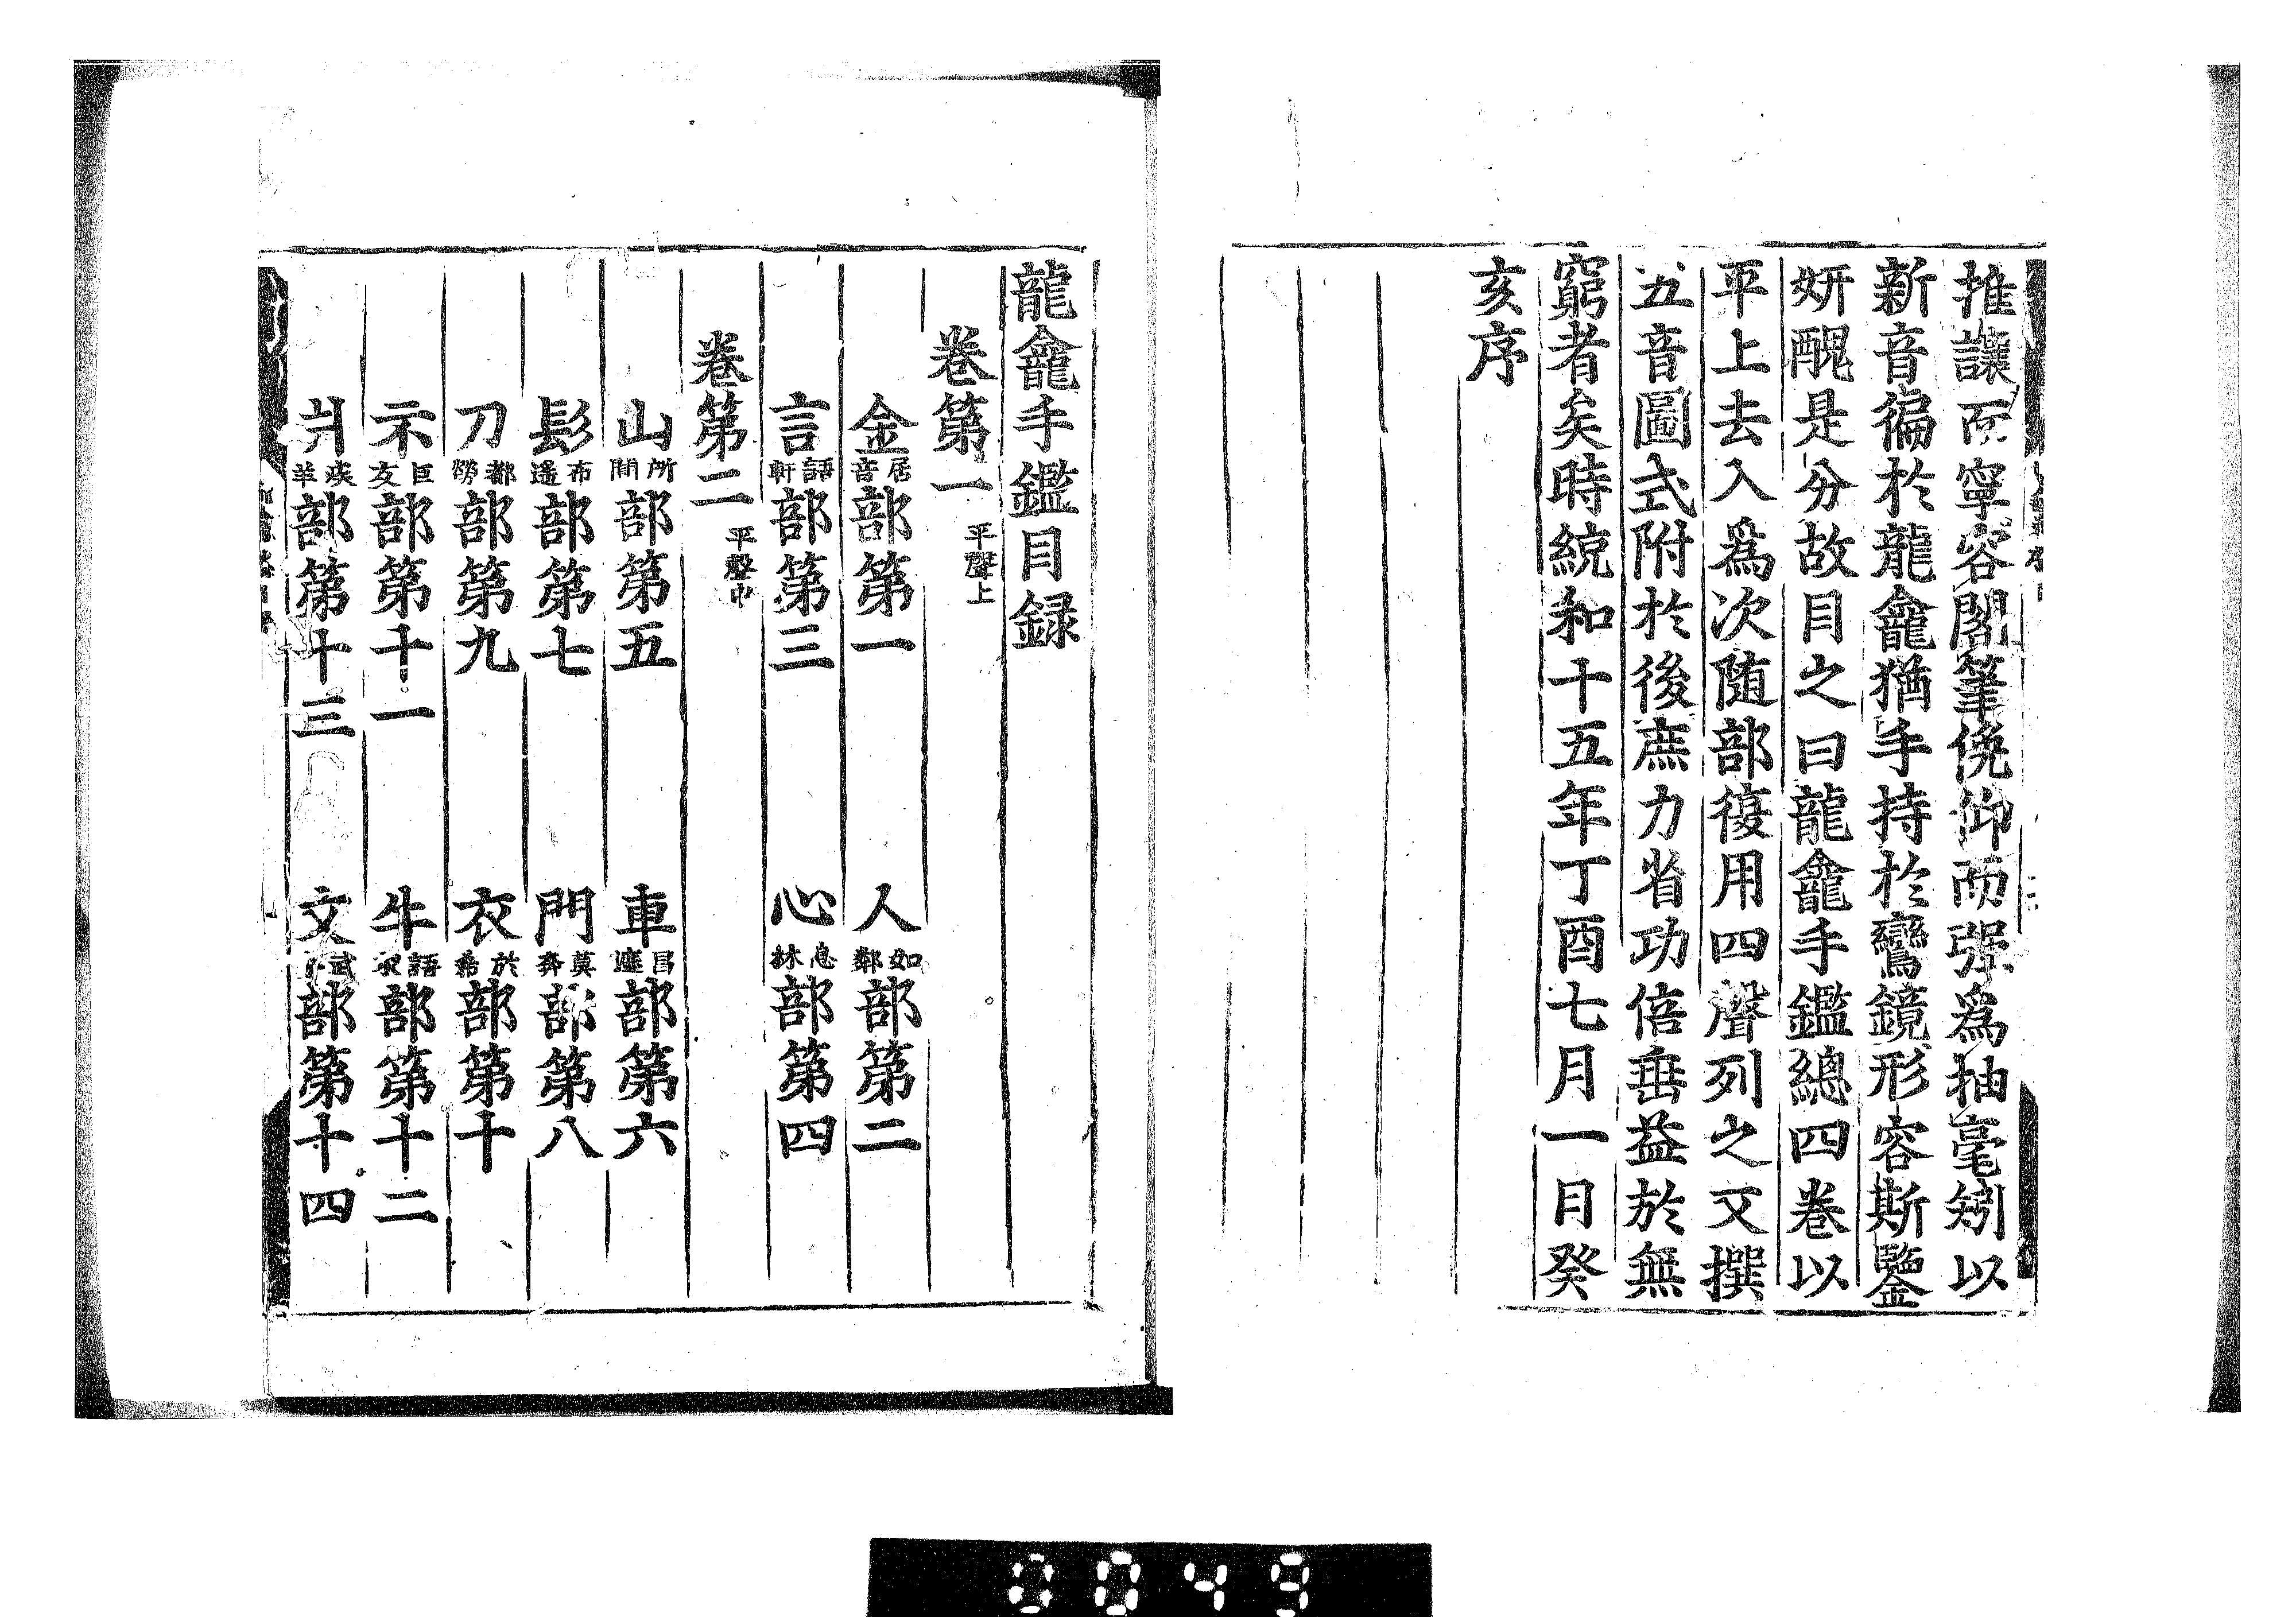 推讓而寧容閣筆俛仰而强爲抽毫矧以
新音徧於龍龕猶手持於鸞鏡形容斯鑒
妍醜是分故目之曰龍龕手鑑總四卷以
平上去入爲次随部復用四聲列之又撰
五音圖式附於後庶力省功倍垂益於無
窮者矣時統和十五年丁酉七月一日癸
亥序
龍龕手鑑目録
卷第一平聲上
金居音部第一 人如鄰部第二
言語軒部第三 心息林部第四
卷第二平聲中
山所間部第五 車昌遮部第六
髟布遥部第七 門莫奔部第八
刀都勞部第九 衣於希部第十
示巨支部第十一 牛語求部第十二
爿疾羊部第十三 文武部第十四
0049